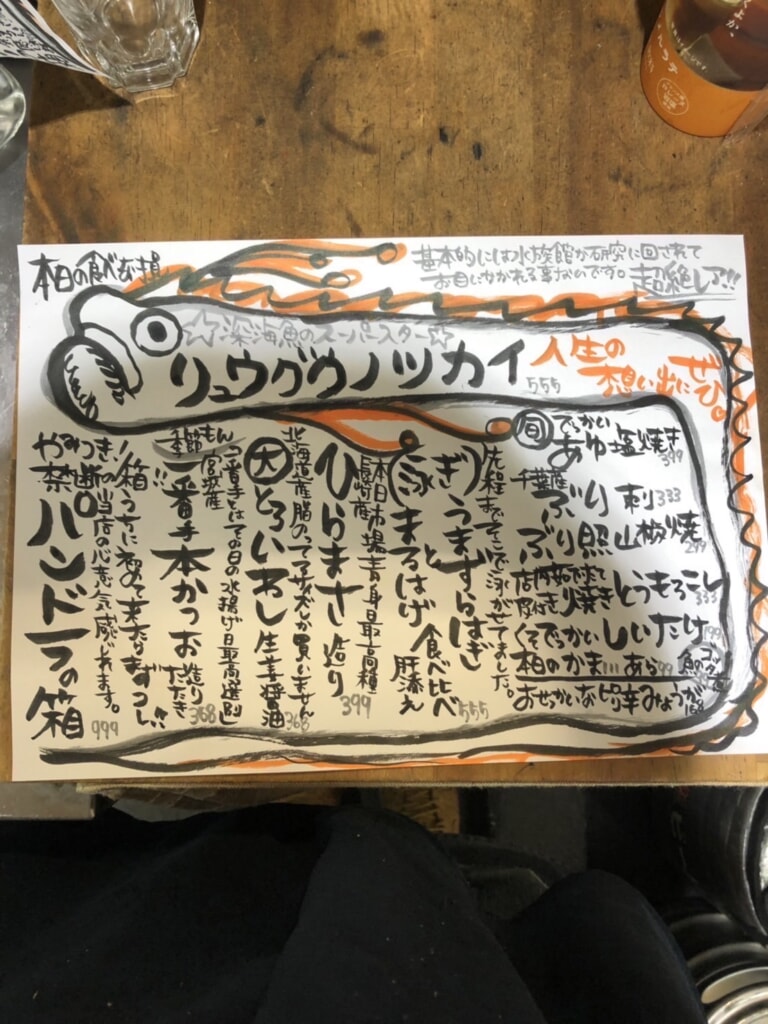 本日の食べな損
基本的には水族館か研究に回されて
お目にかかれる事ないです。超絶レア!!
☆深海魚のスーパースター☆
リュウグウノツカイ 555
人生の
想い出に
ぜひ。
旬 でっかい
あゆ塩焼き 399
千葉産
ぶり 刺 333
ぶり照山椒焼 299
焼きとうもろこし 333
くそでっかいしいたけ 199
相のかま…あら 99
おせっかいなピリ辛みょうが 168
先程までそこで泳がせてました。
(泳)うまずらはぎ
と
まるはげ
食べ比べ
肝添え 555
本日市場青身最高種
長崎産
ひらまさ造り 399
北海道産脂のってるサイズしか買いません
大とろいわし 生姜醤油 368
一番手とはその日の水揚げ日最高選別
宮城産
一番手本かつお 造り
たたき 368
!箱うちに初めて来たならまずコレ!!
きの当店の心意気感じれます。
やみつき
禁断。パンドラの箱 999